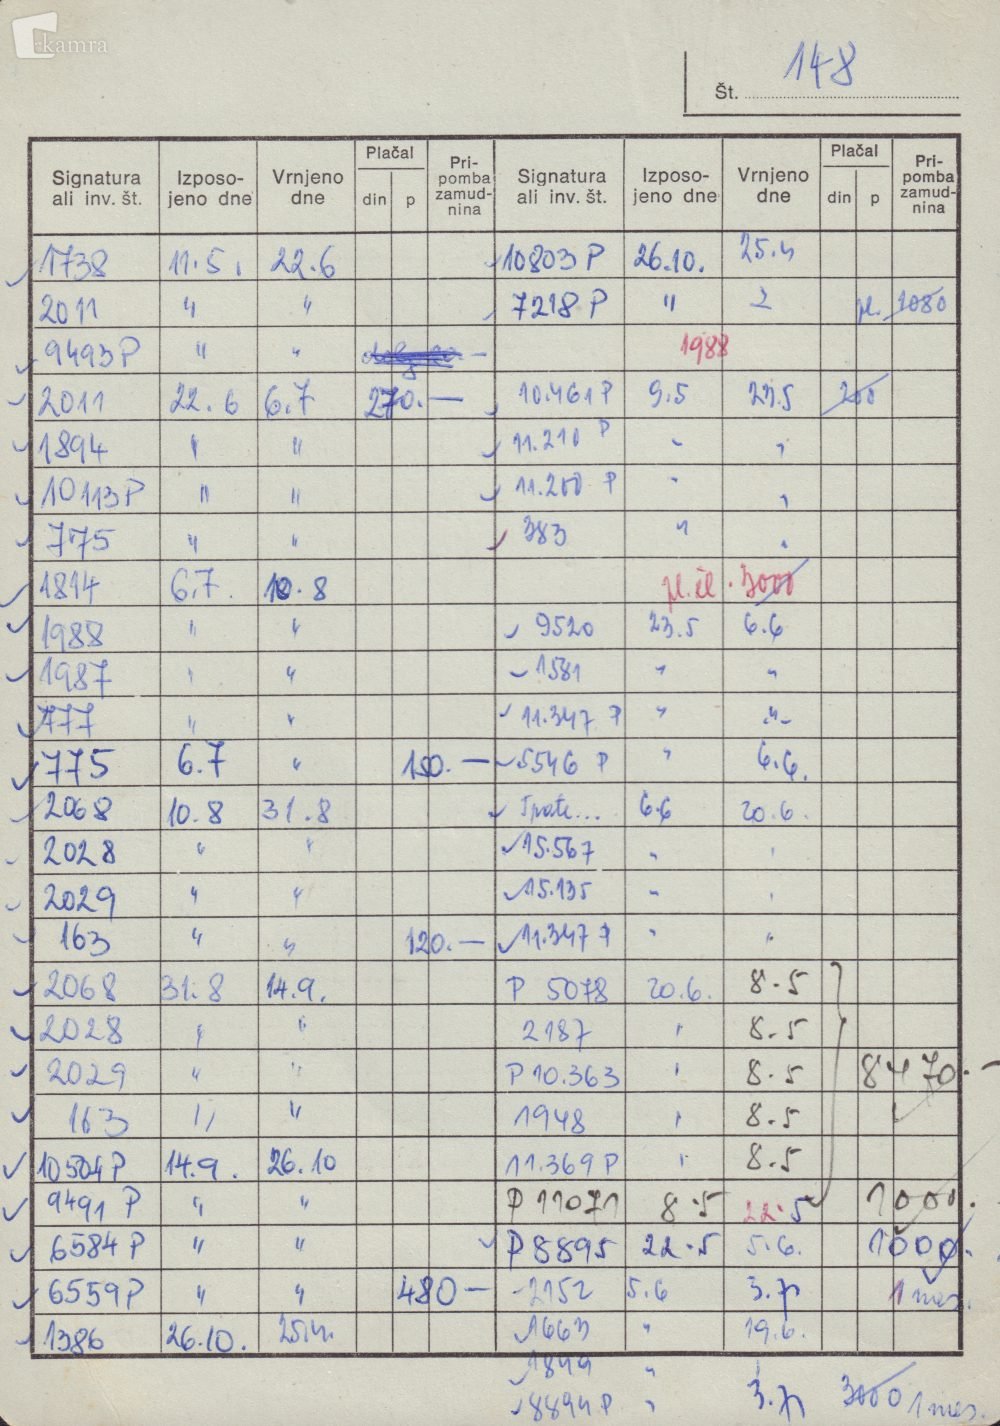 kamra
148
Št.
Signatura ali inv. št. Izposojeno dne Vrnjeno dne Plačal din p Pripomba zamudnina Signatura ali inv. št. Izposojeno dne Vrnjeno dne Plačal din p Pripomba zamudnina
1738 11.5. 22.6 10803 P 26.10.
2011 " " 7218 P " pl. 1080
9493 P " " 1988
2011 22.6 6.7 270.— 10.461 P 9.5 23.5 200
1894 " " 11.210 P " "
10113 P " " 11.200 P " "
775 " " 383 " "
1814 6.7. 10.8 3000
1988 " " 9520 23.5 6.6
1987 " " 1581 " "
777 " " 11.347 P " "
775 6.7 " 150.— 5546 P " 6.6.
2068 10.8 31.8 6.6 20.6.
2028 " " 15.567 " "
2029 " " 15.135 " "
163 " " 120.— 11.347 P " "
2068 31.8 14.9. P 5078 20.6. 8.5
2028 " " 2187 " 8.5
2029 " " P 10.363 " 8.5 8470.-
163 " " 1948 " 8.5
10504 P 14.9. 26.10 11.369 P " 8.5
9491 P " " P 11071 8.5 22.5 1000.
6584 P " " P 8895 22.5 5.6. 1000.
6559 P " " 480— 2152 5.6 1 mes.
1386 26.10. 1663 " 19.6.
1849 "
8894 P " 3000 1 mes.